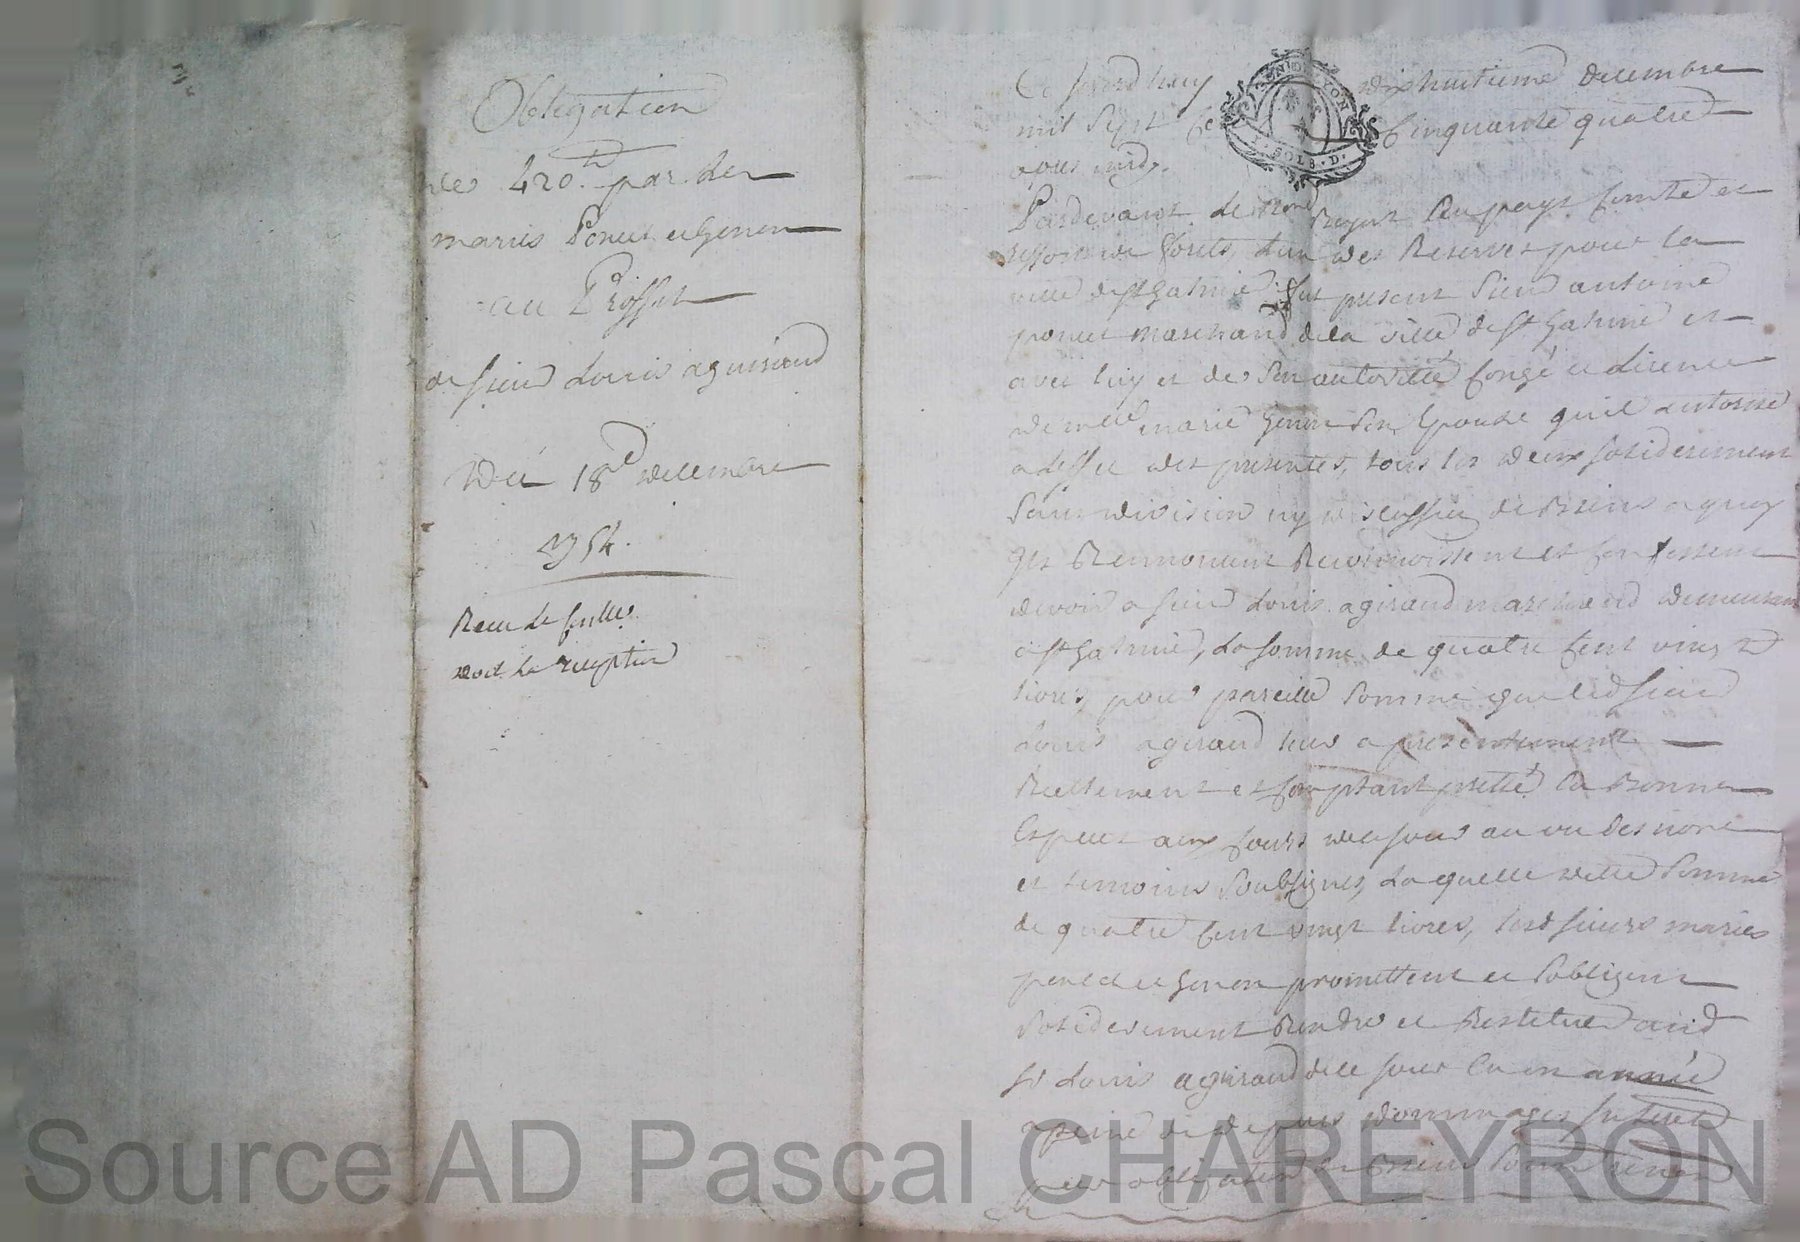 Obligation
de 420.ᵗᵗ par les
mariés Poncet et Genon
au Proffit
de sieur Louis aguiraud
Du 18ᵉ decembre
1754.
Receu le
voir la reception
Ce jourd'huy dix huitieme decembre
mil sept Cinquante quatre
apres midy.
GEN DE LYON
SOLS. D.
Pardevant le No.ʳᵉ Royal du pays Comté et
ressort de forets, l'un des Reservés pour la
ville de st Galmier. fut present sieur antoine
poncet marchand de la ville de st Galmier et
avec luy et de son autorité Congé et Licence
de melle marie Genon son Epouse qu'il autorise
a leffet des presentes, tous les deux solidairement
sans division ny discussion de Biens a quoy
ils Rennoncent Reconnoissent et Confessent
devoir a sieur Louis agiraud marchand demeurant
a st Galmier, La somme de quatre Cent vingt
livres, pour pareille somme que ledˢ sieur
Louis agiraud leur a presentement
Reellement et Comptant pretté En Bonnes
Especes aux Cours de ce jour au vu des nore
et temoins soubsignés, La quelle ditte somme
de quatre Cent vingt livres, lesdˢ sieurs mariés
poncet et Genon promettent et s'obligent
solidairement Rendre et Restituer audˢ
sʳ Louis aguiraud de ce jour En un année
a peine de depens dommages Interets
par obligation de Biens
Source AD Pascal CHAREYRON